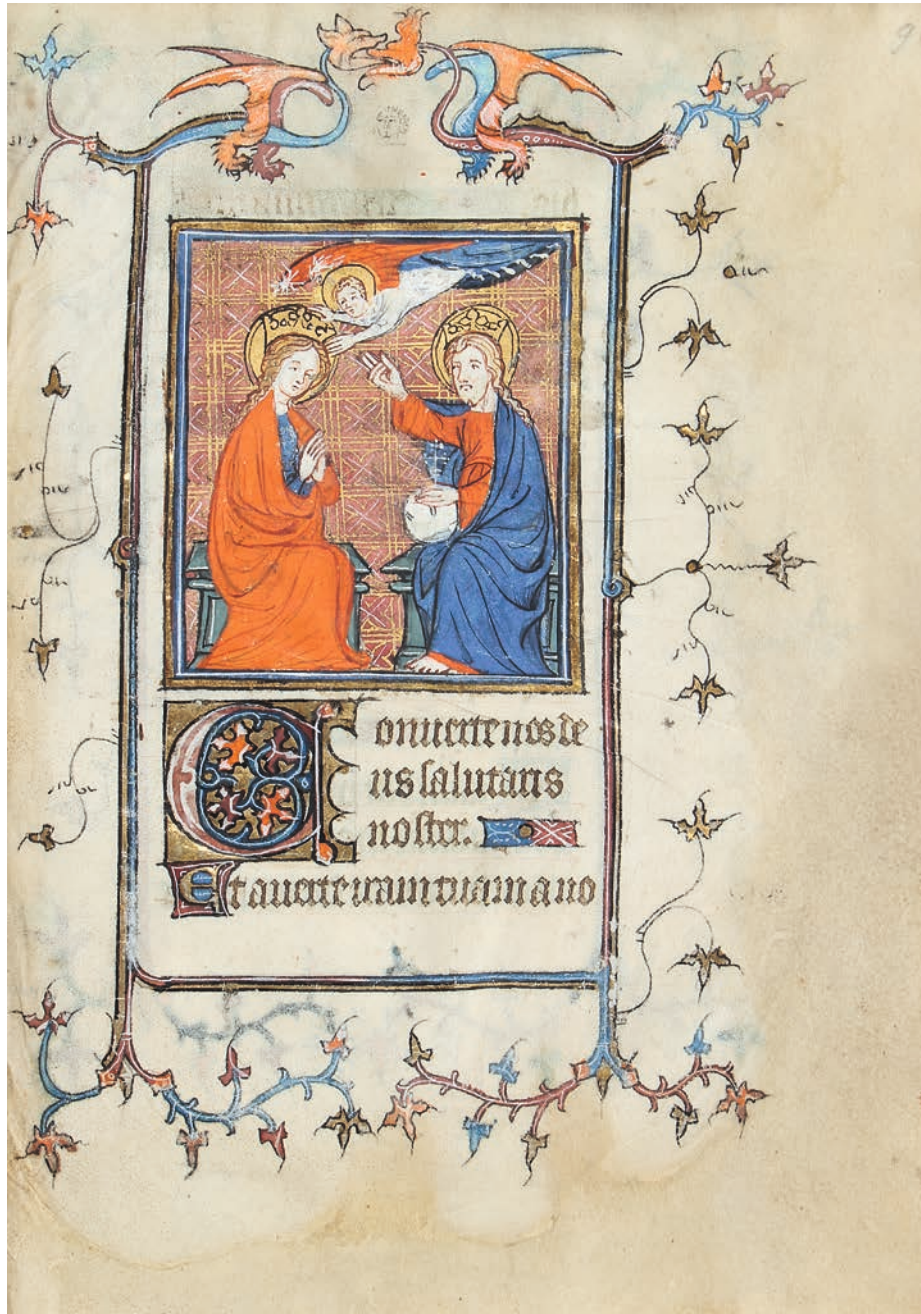 9
Conuerte nos de
us salutaris
noster.
Et auerte iram tuam a no